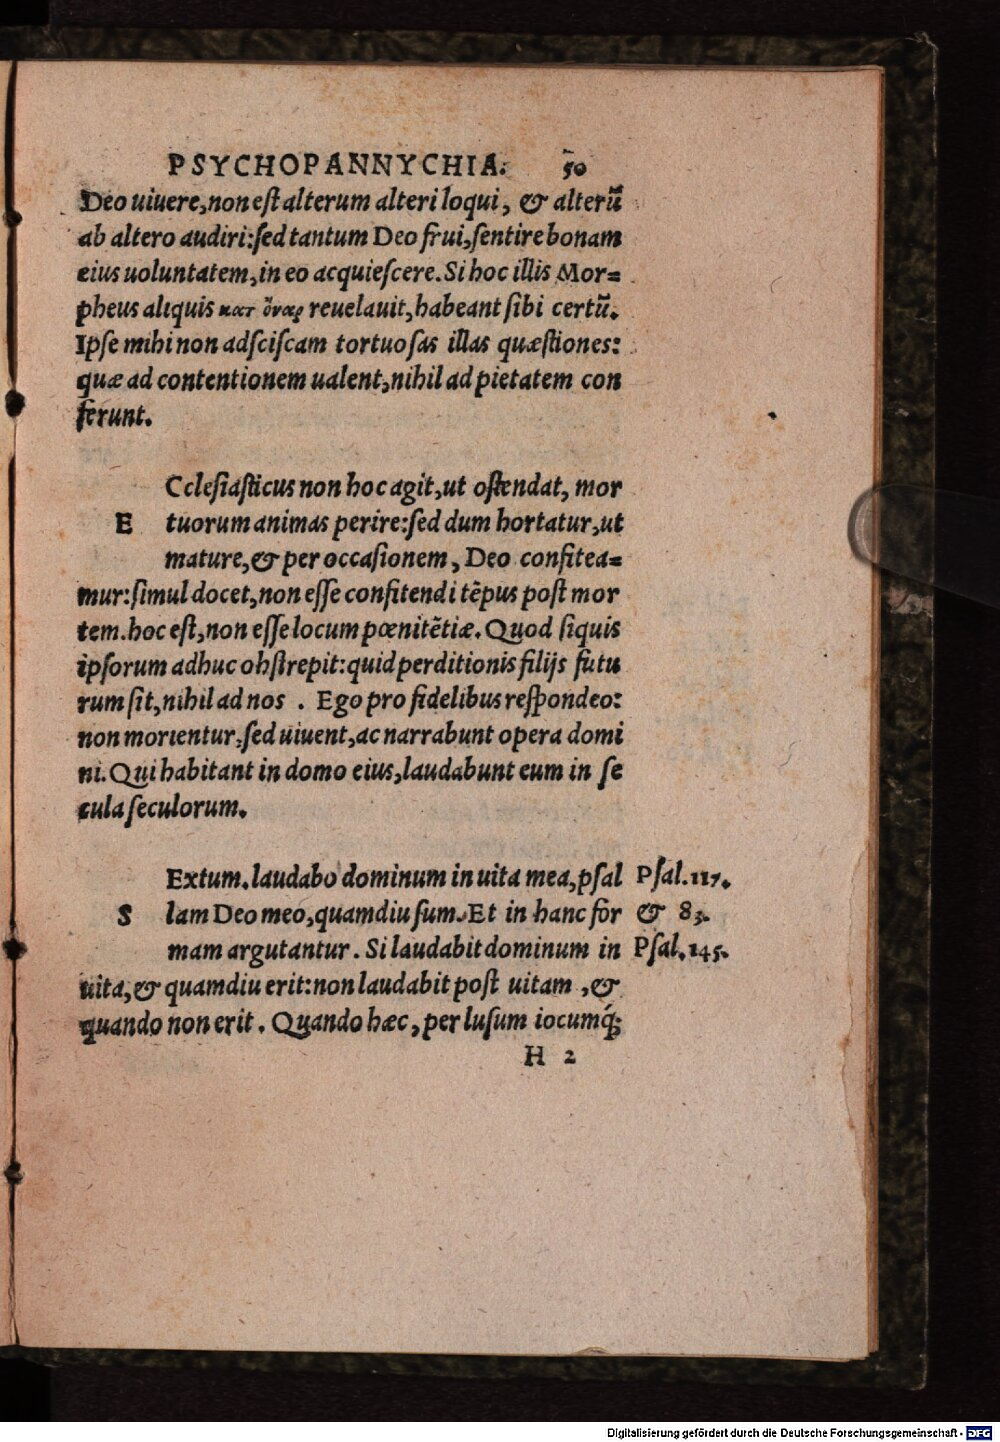 PSYCHOPANNYCHIA. 50
Deo uiuere, non est alterum alteri loqui, & alterũ
ab altero audiri: sed tantum Deo frui, sentire bonam
eius uoluntatem, in eo acquiescere. Si hoc illis Mor=
pheus aliquis κατ ὄναρ reuelauit, habeant sibi certũ.
Ipse mihi non adsciscam tortuosas illas quæstiones:
quæ ad contentionem ualent, nihil ad pietatem con
ferunt.
Cclesiasticus non hoc agit, ut ostendat, mor
E tuorum animas perire: sed dum hortatur, ut
mature, & per occasionem, Deo confitea=
mur: simul docet, non esse confitendi tẽpus post mor
tem. hoc est, non esse locum pœnitẽtiæ. Quod siquis
ipsorum adhuc obstrepit: quid perditionis filijs futu
rum sit, nihil ad nos . Ego pro fidelibus respondeo:
non morientur, sed uiuent, ac narrabunt opera domi
ni. Qui habitant in domo eius, laudabunt eum in se
cula seculorum.
Extum. laudabo dominum in uita mea, psal Psal. 117.
S lam Deo meo, quamdiu sum. Et in hanc for & 83.
mam argutantur. Si laudabit dominum in Psal. 145.
uita, & quamdiu erit: non laudabit post uitam , &
quando non erit. Quando hæc, per lusum iocumq́;
H 2
Digitalisierung gefördert durch die Deutsche Forschungsgemeinschaft - DFG